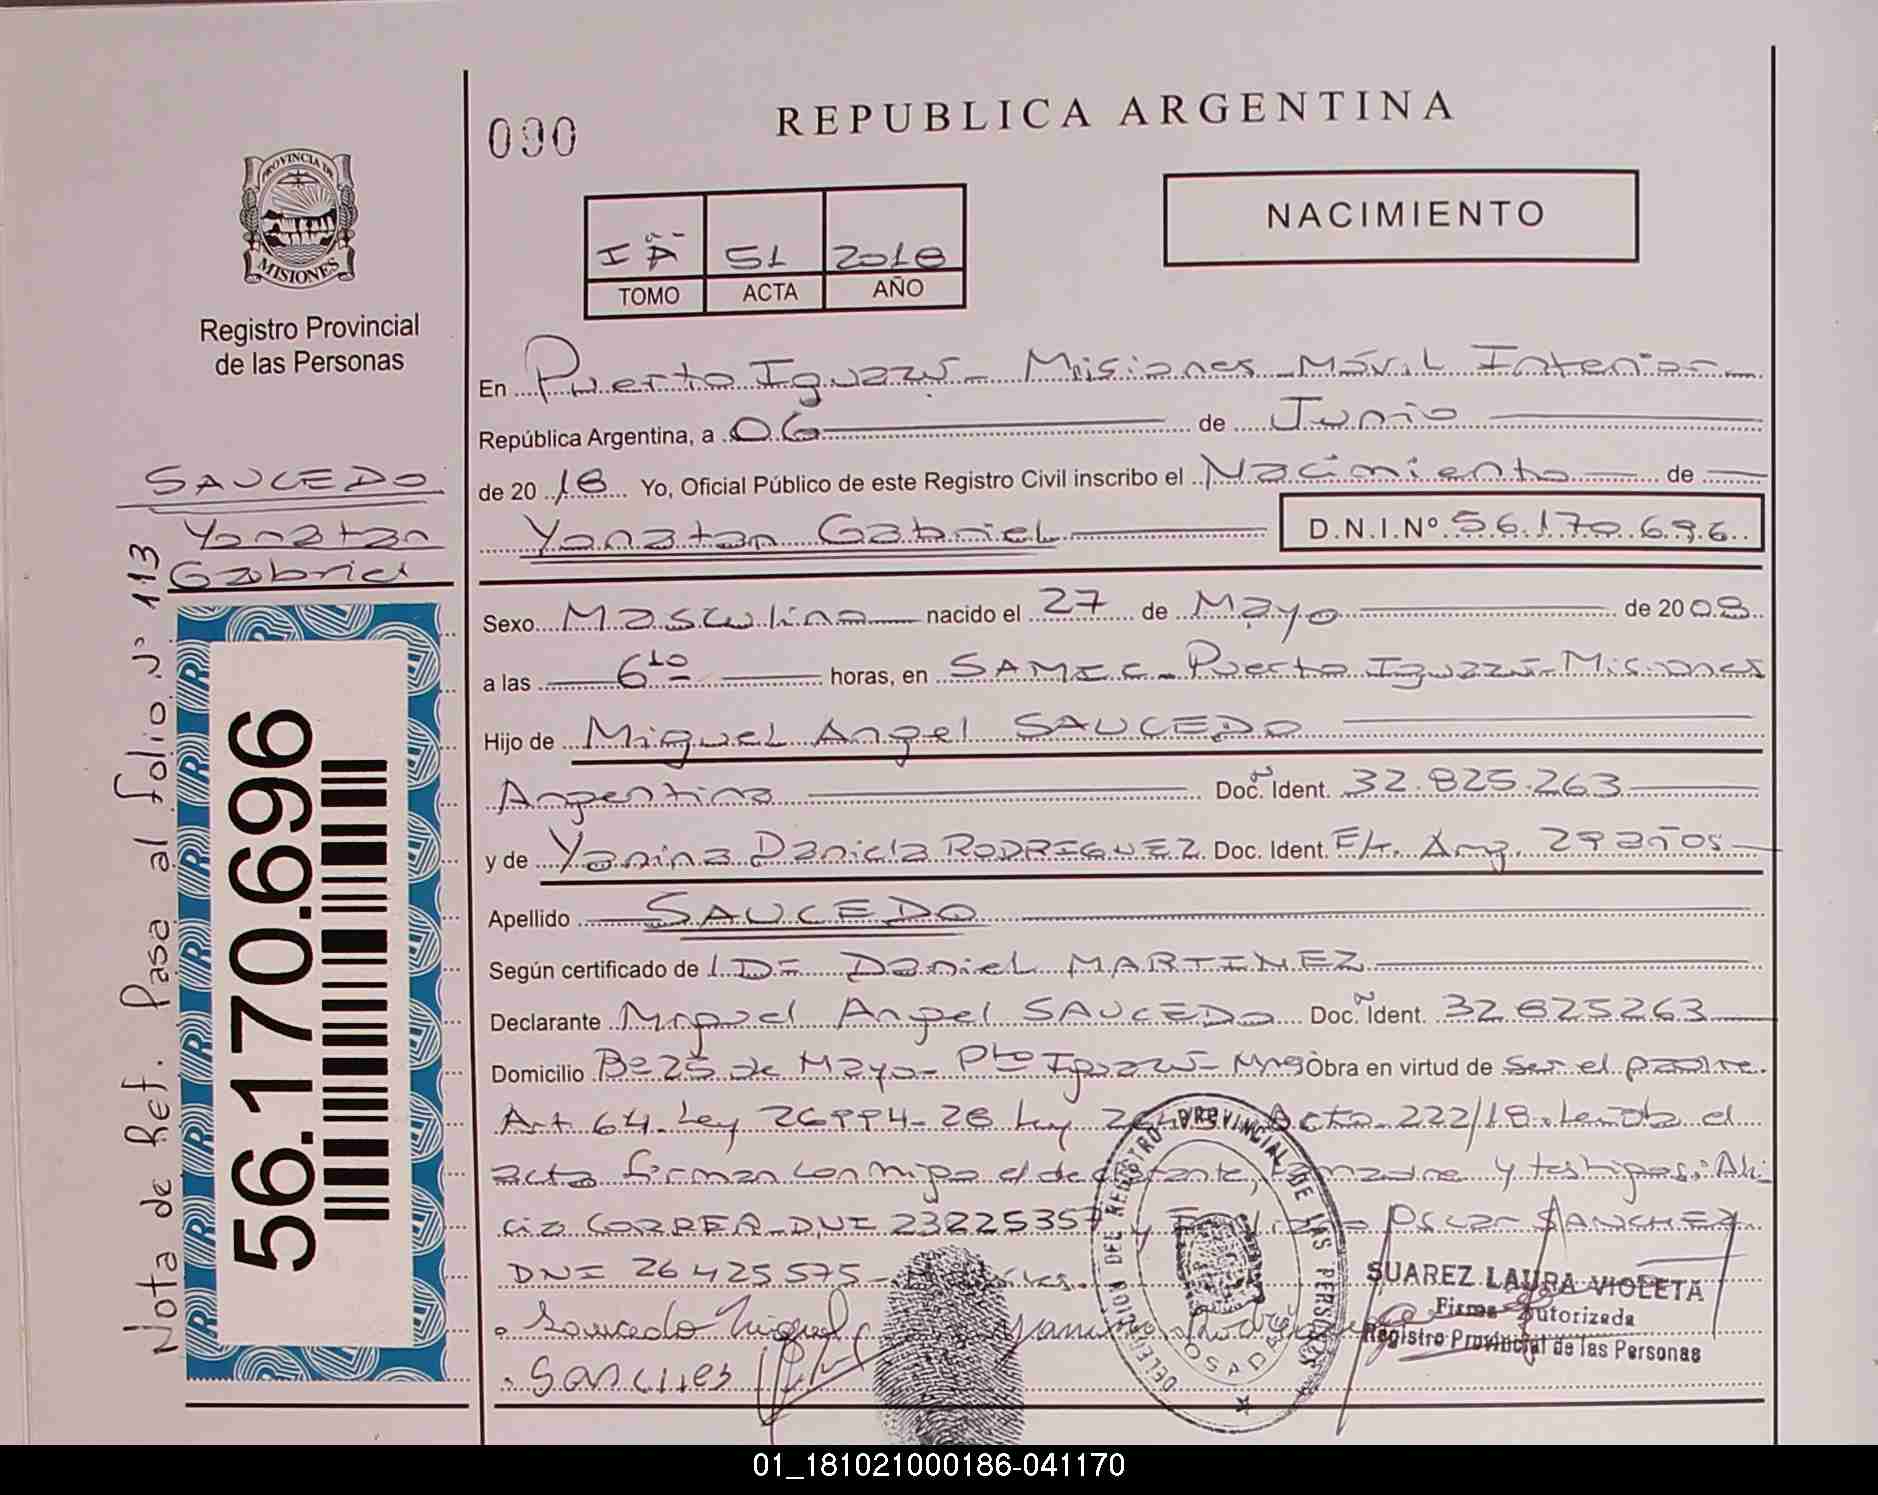 090
REPUBLICA ARGENTINA
PROVINCIA DE
MISIONES
Registro Provincial
de las Personas
NACIMIENTO
I A 51 2018
TOMO ACTA AÑO
En Puerto Iguazú - Misiones - Móvil Interior
República Argentina, a 06 de Junio
de 2018 Yo, Oficial Público de este Registro Civil inscribo el Nacimiento de
Yonatan Gabriel D.N.I.Nº 56.170.696
SAUCEDO
Yonatan
Gabriel
Nota de Ref. Pasa al folio Nº 113
56.170.696
Sexo Masculino nacido el 27 de Mayo de 2008
a las 6 10 horas, en SAMIC - Puerto Iguazú - Misiones
Hijo de Miguel Angel SAUCEDO
Argentino Doc. Ident. 32.825.263
y de Yanina Daniela RODRIGUEZ Doc. Ident. Arg. 29 años
Apellido SAUCEDO
Según certificado de Daniel MARTINEZ
Declarante Miguel Angel SAUCEDO Doc. Ident. 32.825263
Domicilio Bº 25 de Mayo - Pto Iguazú - Mnes Obra en virtud de ser el padre.
Art 64 - Ley 26994 - 28 Ley Acta 222/18. Leída el
acta firman conmigo el la madre y testigos: Ali
cia CORREA - DNI 23225357 y Oscar SANCHEZ
DNI 26425575 -
Saucedo Miguel
Sanches
DELEGACION DEL REGISTRO PROVINCIAL DE LAS PERSONAS
POSADAS
SUAREZ LAURA VIOLETA
Firma Autorizada
Registro Provincial de las Personas
01_181021000186-041170